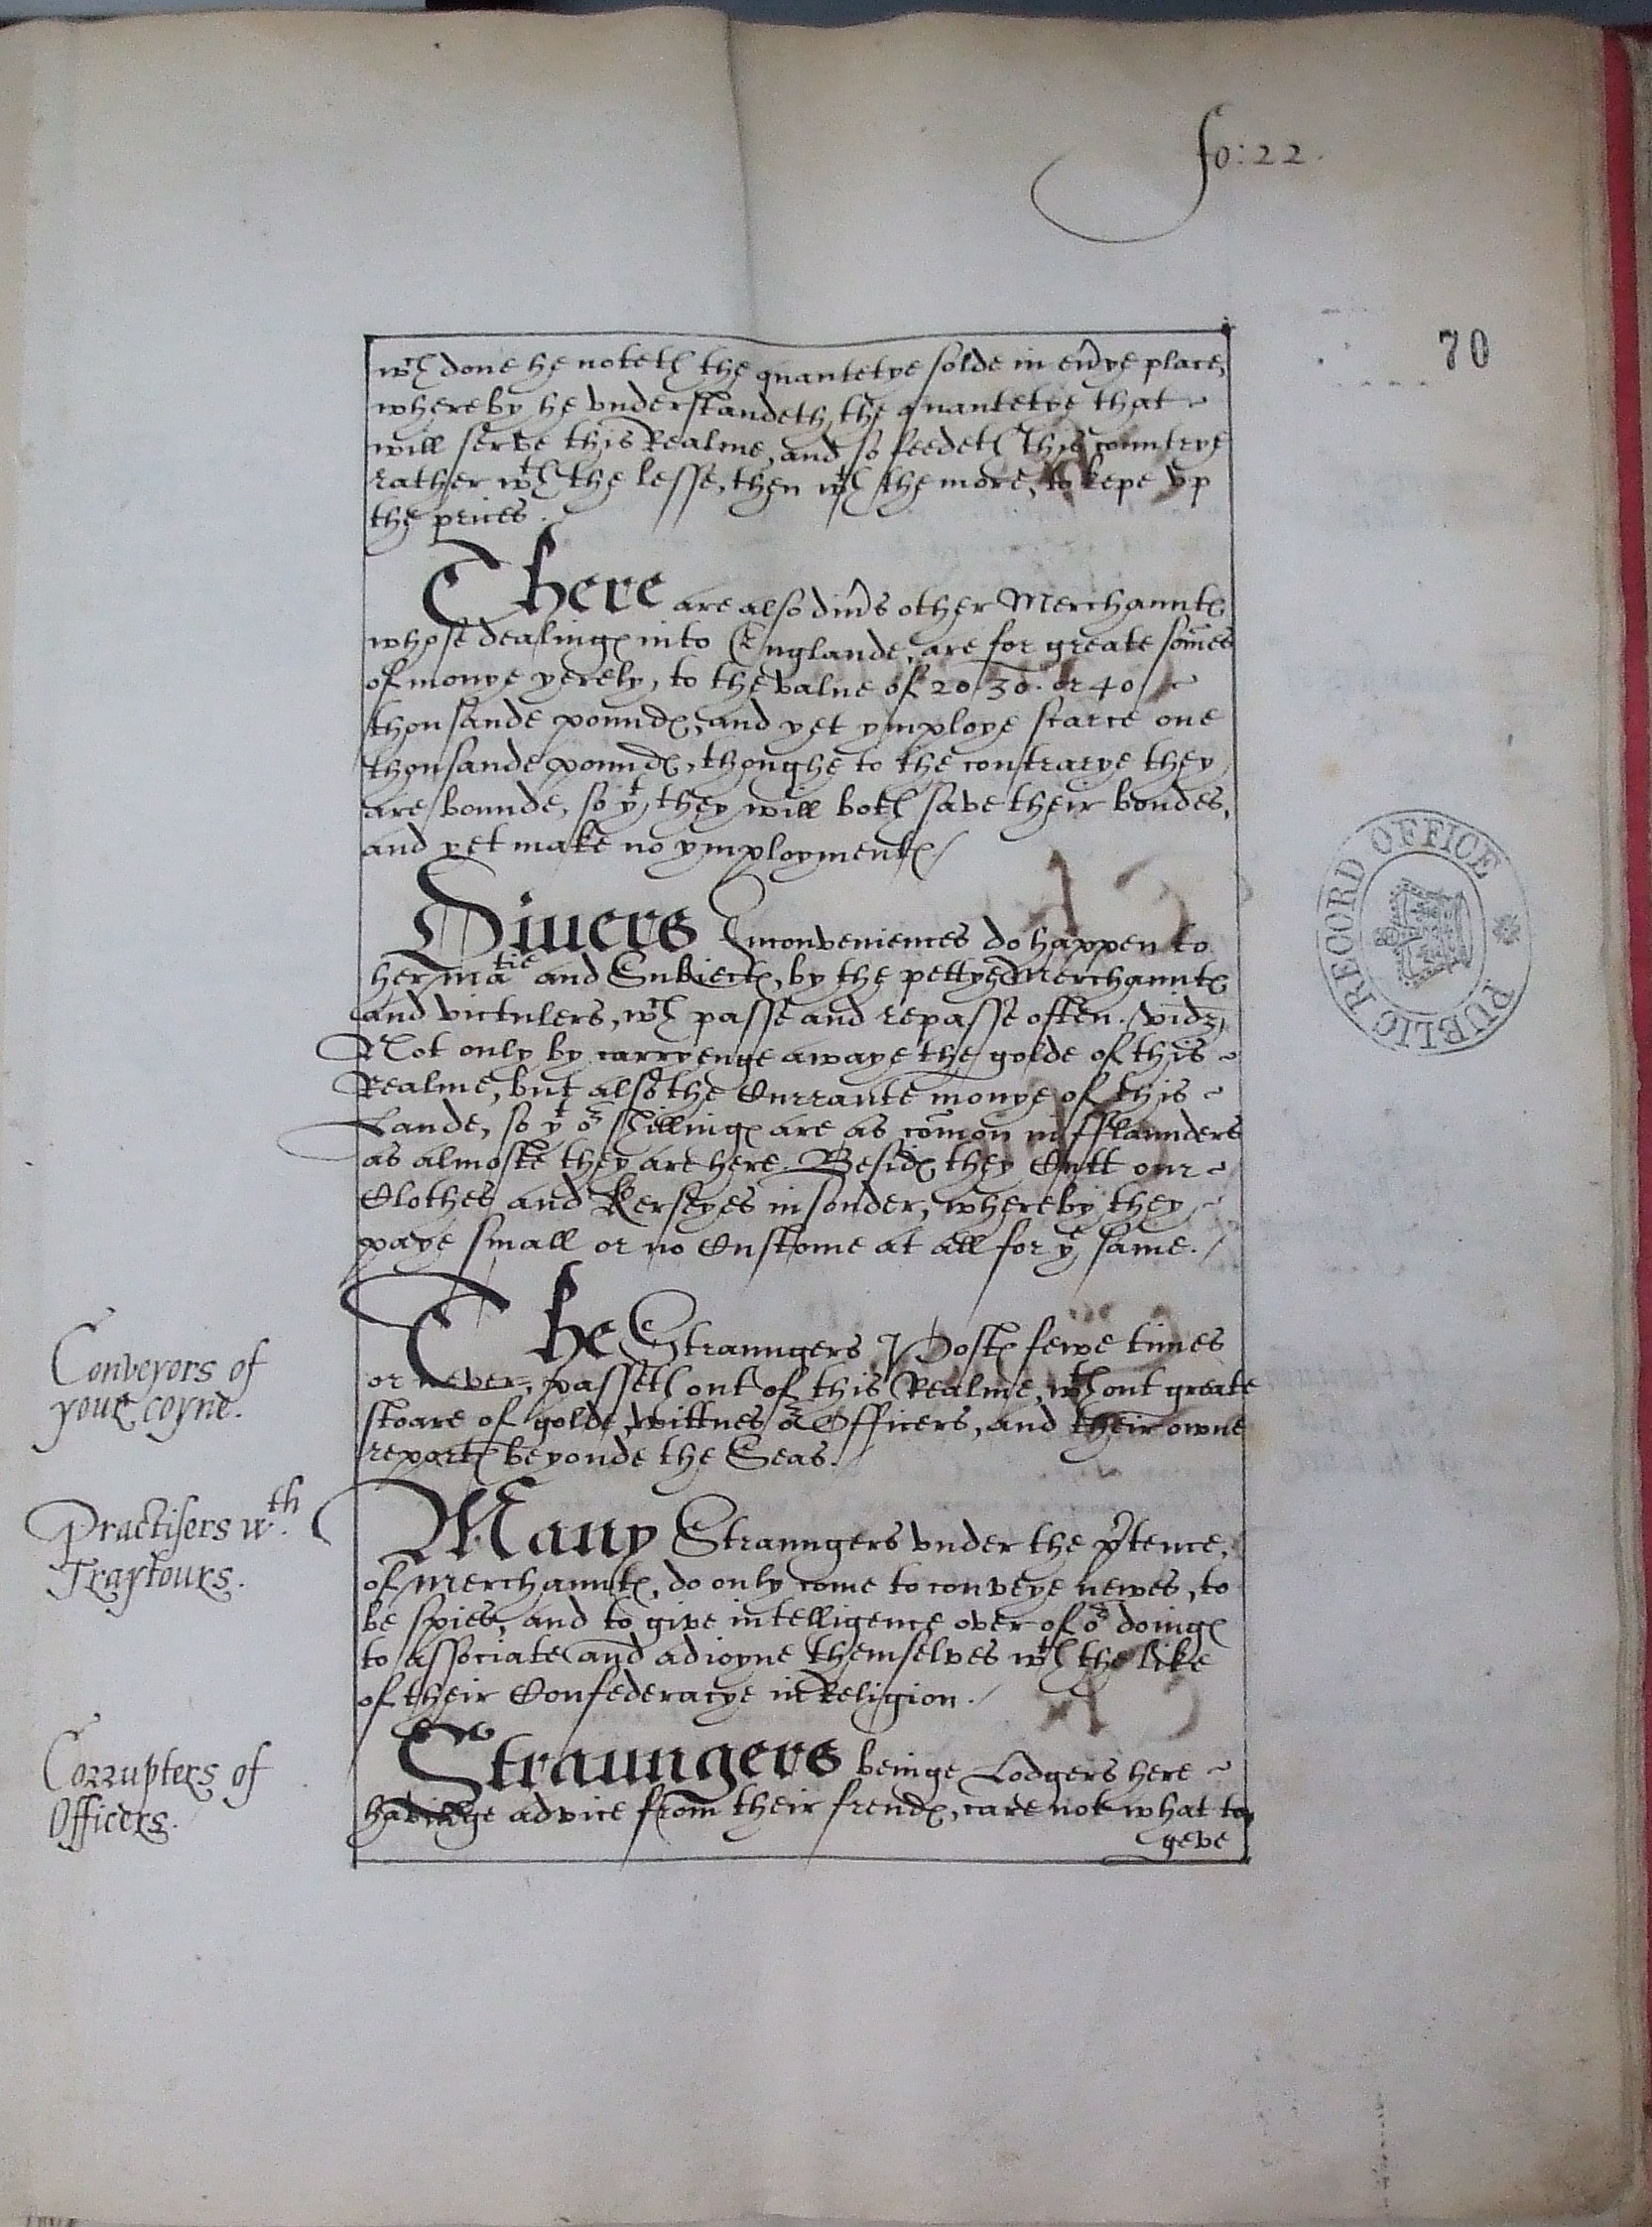 fo: 22.
70
wch done he noteth the quantetye solde in eu'ye place,
whereby he vnderstandeth the quantetye that
will serve this Realme, and so feedeth this countrye
rather wth the lesse, then wth the more, to kepe vp
the prices.
There are also diu's other Merchauntes
whose dealinges into Englande, are for greate som̃es
of monye yerely, to the value of 20. 30. or 40
thousande poundes, and yet ymploye scarce one
thousande poundes, thoughe to the contrarye they
are bounde, so yt they will both save their bondes,
and yet make no ymploymentes /
Diuers Inconveniences do happen to
her matie and Subiectes, by the pettye Merchauntes
and victulers, wch passe and repasse often. vidz,
Not only by carryenge awaye the golde of this
Realme, but also the Currante monye of this
Lande, so yt or shillinges are as com̃on in fflaunders
as almoste they are here. Besides they Cutt our
Clothes and Kerseyes in sonder, whereby they
paye small or no Custome at all for ye same. /
Conveyors of
your coyne.
The Straungers Postes fewe times
or never, passeth out of this Realme, wthout greate
stoare of golde, wittnes or Officers, and their owne
reportes beyonde the Seas.
Practisers wth.
Traytours.
Many Straungers vnder the p'tence,
of Merchauntes, do only come to conveye newes, to
be spies, and to give intelligence over of or doinges
to associate and adioyne themselves wth the like
of their Confederacye in Religion. /
Corrupters of
Officers.
Straungers beinge Lodgers here
havinge advice from their frendes, care not what to
geve
PUBLIC RECORD OFFICE